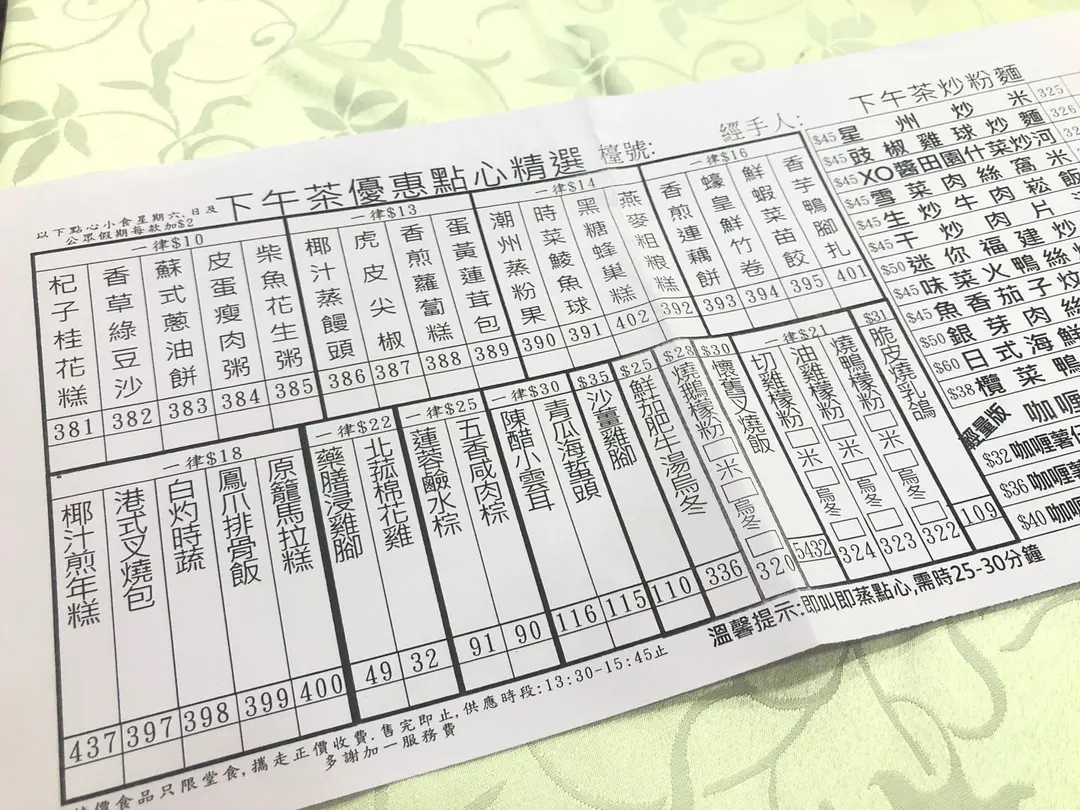 下午茶優惠點心精選
檯號:
經手人:
以下點心小食星期六,日及
公眾假期每款加$2
一律$10
杞子桂花糕 381
香草綠豆沙 382
蘇式蔥油餅 383
皮蛋瘦肉粥 384
柴魚花生粥 385
一律$13
椰汁蒸饅頭 386
虎皮尖椒 387
香煎蘿蔔糕 388
蛋黃蓮茸包 389
一律$14
潮州蒸粉果 390
時菜鯪魚球 391
黑糖蜂巢糕 402
燕麥粗粮糕 392
一律$16
香煎連藕餅 393
蠔皇鮮竹卷 394
鮮蝦菜苗餃 395
香芋鴨腳扎 401
一律$18
椰汁煎年糕 437
港式叉燒包 397
白灼時蔬 398
鳳爪排骨飯 399
原籠馬拉糕 400
一律$22
藥膳浸雞腳 49
北菰棉花雞 32
一律$25
蓮蓉鹼水棕 91
五香咸肉棕 90
一律$30
陳醋小雲耳 116
青瓜海蜇頭 115
$35
沙薑雞腳 110
$25
鮮茄肥牛湯烏冬 336
$28
燒鵝檬粉 米 烏冬 320
$30
懷舊叉燒飯 5432
一律$21
切雞檬粉 米 烏冬 324
油雞檬粉 米 烏冬 323
燒鴨檬粉 米 烏冬 322
$31
脆皮燒乳鴿 109
下午茶炒粉麵
$45 星州炒米 325
$45 豉椒雞球炒麵 326
$45 XO醬田園什菜炒河
$45 雪菜肉絲窩米
$45 生炒牛肉崧飯
$45 干炒肉片
$50 迷你福建炒
$45 味菜火鴨絲炆
$45 魚香茄子炆
$50 銀芽肉絲
$60 日式海鮮
$38 欖菜鴨
輕量版
咖喱
$32 咖喱薯仔
$36 咖喱薯
$40 咖喱
溫馨提示:即叫即蒸點心,需時25-30分鐘
價食品只限堂食,攜走正價收費.售完即止,供應時段:13:30-15:45止
多謝加一服務費